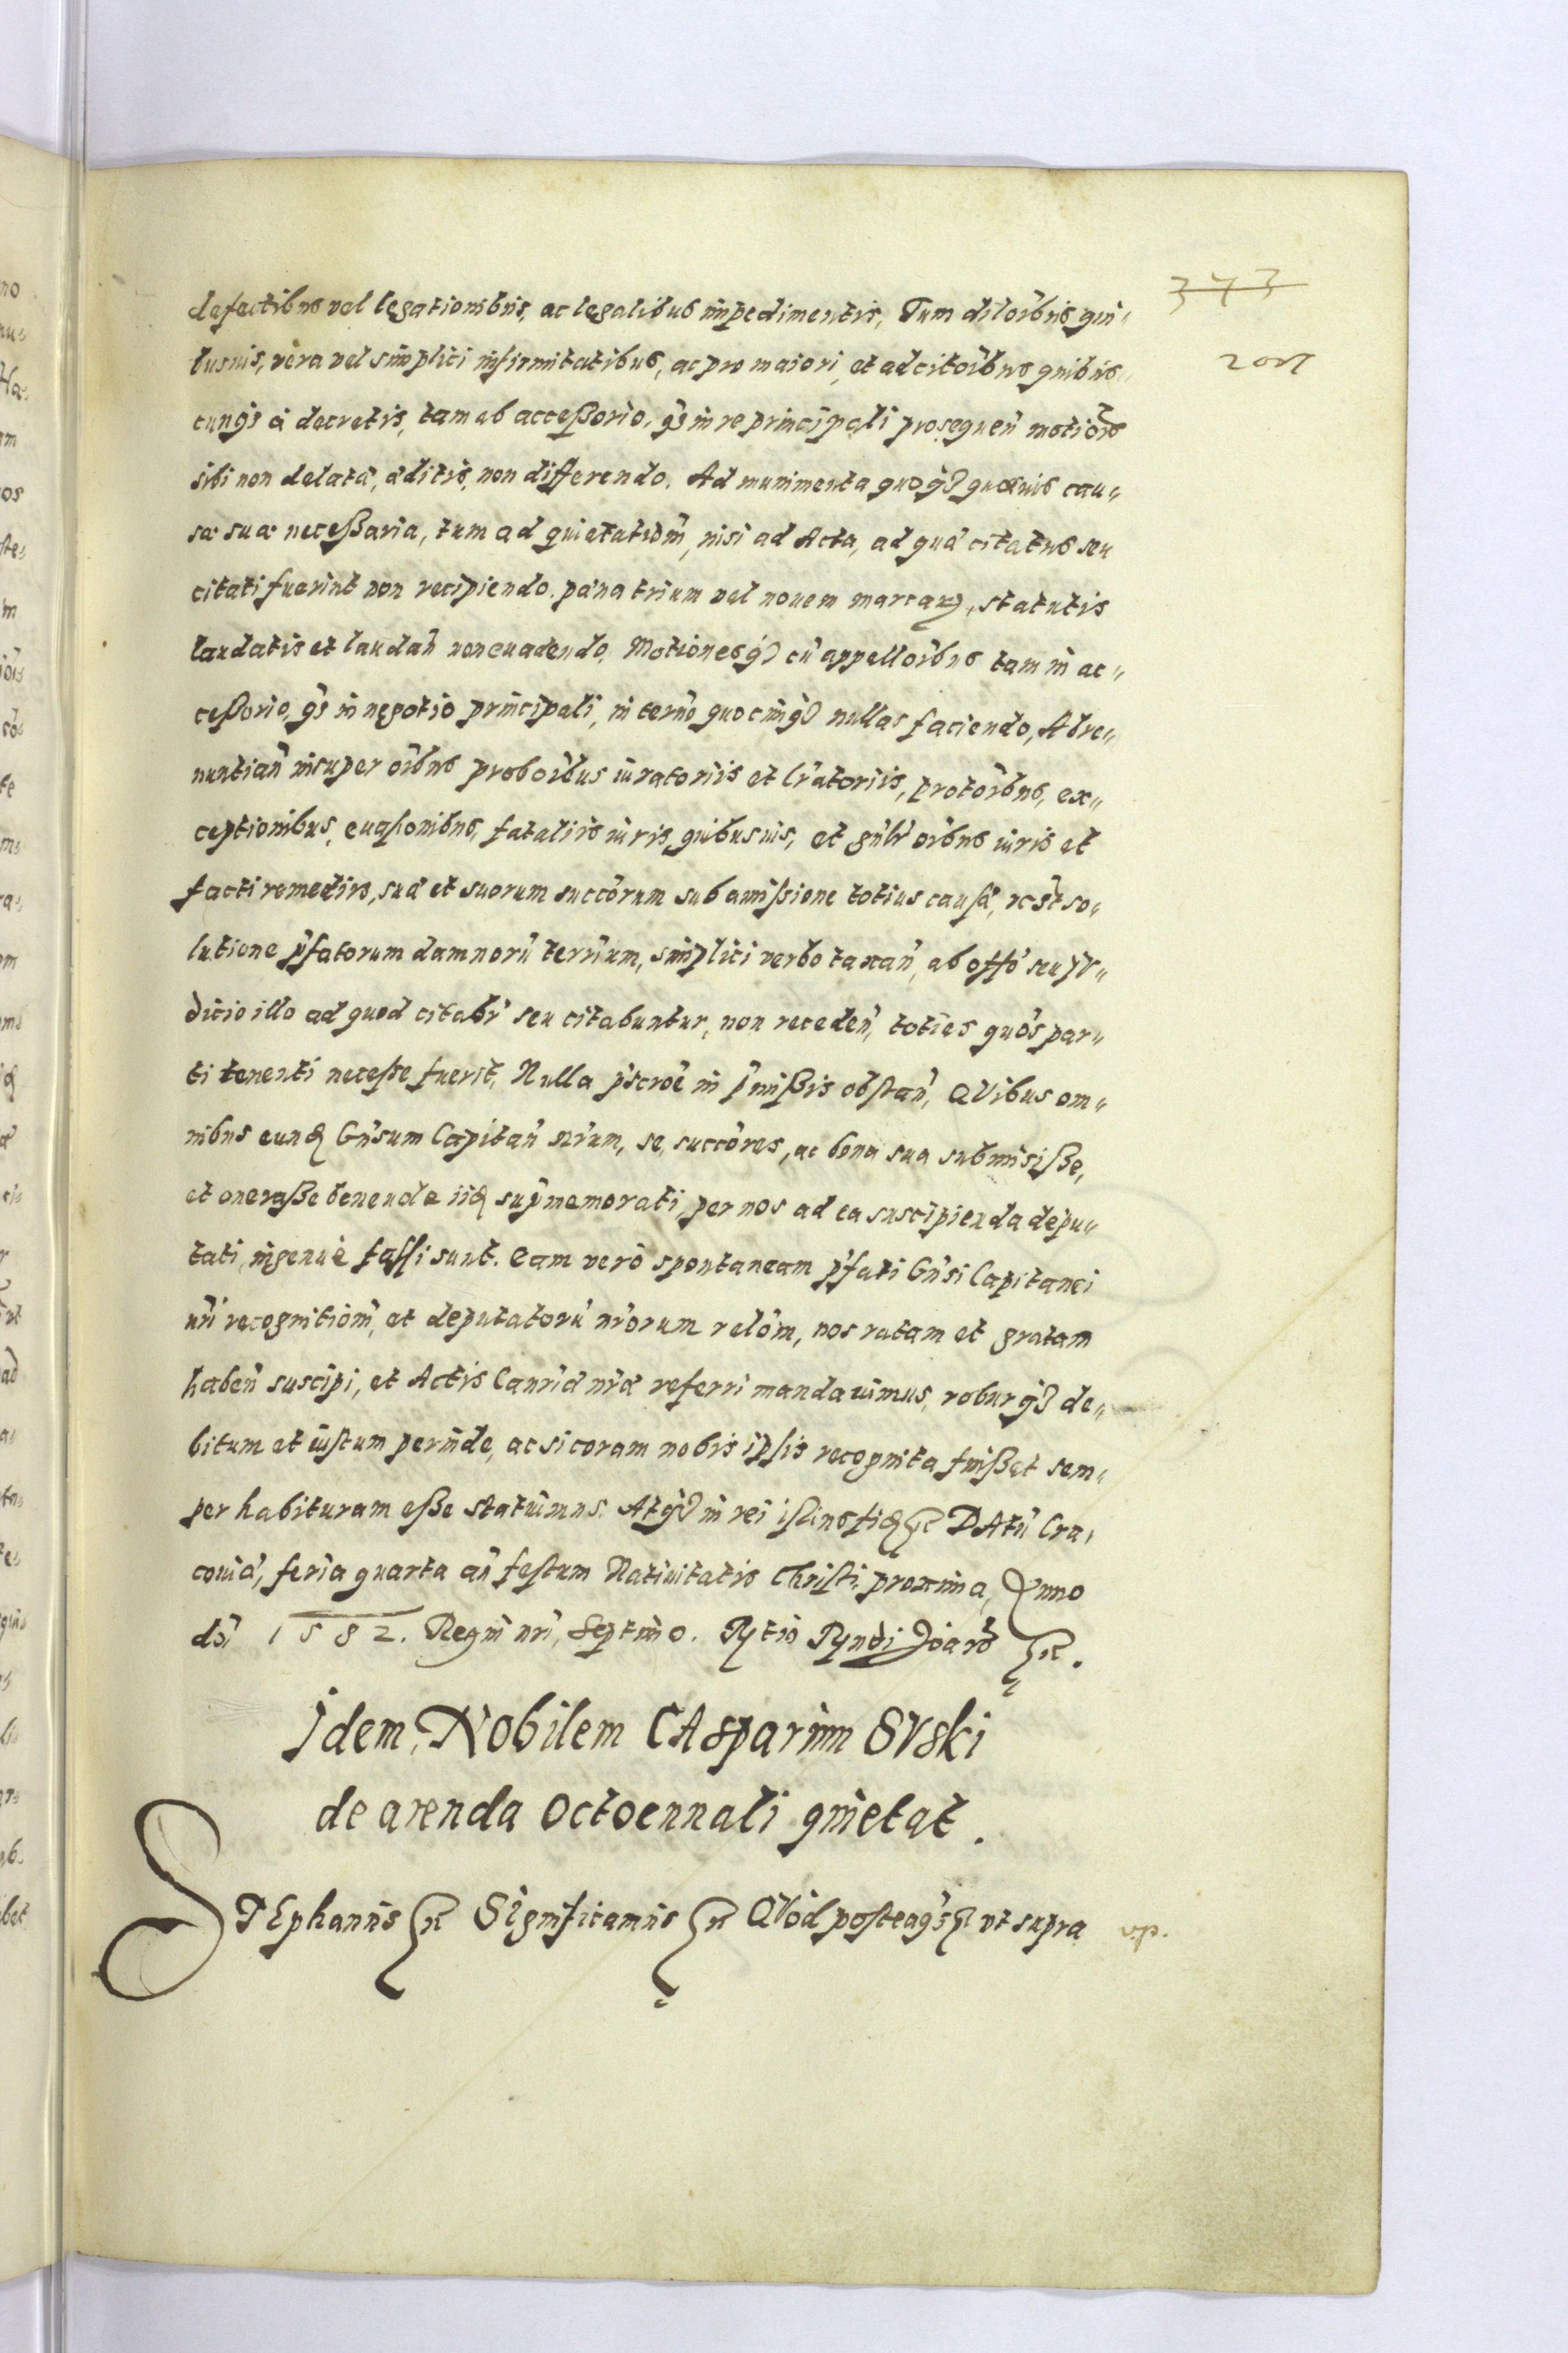 343
207
defectibus vel legationibus, ac legalibus impedimentis, Tum diloibus qui„
busuis, vera vel simplici infirmitatibus, ac pro maiori, et ad citoibus quibus„
cunqs a decretis, tam ab accessorio, qs in re principali prosequen motiois
sibi non delata, aditis, non differendo. Ad munimenta quoqȝ quaeuis cau„
sae suae necessaria, tum ad quietationem, nisi ad Acta, ad quae citatus seu
citati fuerint non recipiendo. paena trium vel nouem marcarȝ, statutis
laudatis et laudan non euadendo, Motionesqȝ cu appelloibus tam in ac„
cessorio, qs in negotio principali, in termo quocunqȝ nullas faciendo, Abre„
nuntian insuper oibus proboibus iuratoriis et lratoriis, protoibus, ex„
ceptionibus, euasionibus, fataliis iuris quibusuis, et gnlr oibus iuris et
facti remediis, sua et suorum succorum sub amissione totius causae, so„
lutione pfatorum damnoru terrium, simplici verbo taxan, ab offo seu Iu„
dicio illo ad quod citabr seu citabuntur, non receden, toties quos par„
ti tenenti necesse fuerit, Nulla pscroe in pmissis obstan, QVibus om„
nibus eunȡ Gnsum Capitan nrum, se, succores, ac bona sua submisisse,
et onerasse beneude iiȡ supmemorati, per nos ad ea suscipienda depu„
tati, ingenue fassi sunt. Eam vero spontaneam pfati Gnsi Capitanei
nri recognitiom, et deputatoru nrorum relom, nos ratam et gratam
haben suscipi, et Actis Canria nra referri mandauimus, roburqȝ de„
bitum et iustum perinde, ac si coram nobis ipsis recognita fuisset sem„
per habituram esse statuimus. Atqȝ in rei istius fiȡ etc DAtu Cra„
couia, feria quarta an festum Natiuitatis Christi proxima, Anno
doi 1582. Regni nri, Septimo. Ptio Pyndi etc.
Idem, Nobilem CAsparum SVski
de arenda octoennali quietat.
STEphanus etc Significamus etc QVod posteaqs etc vt supra vp.